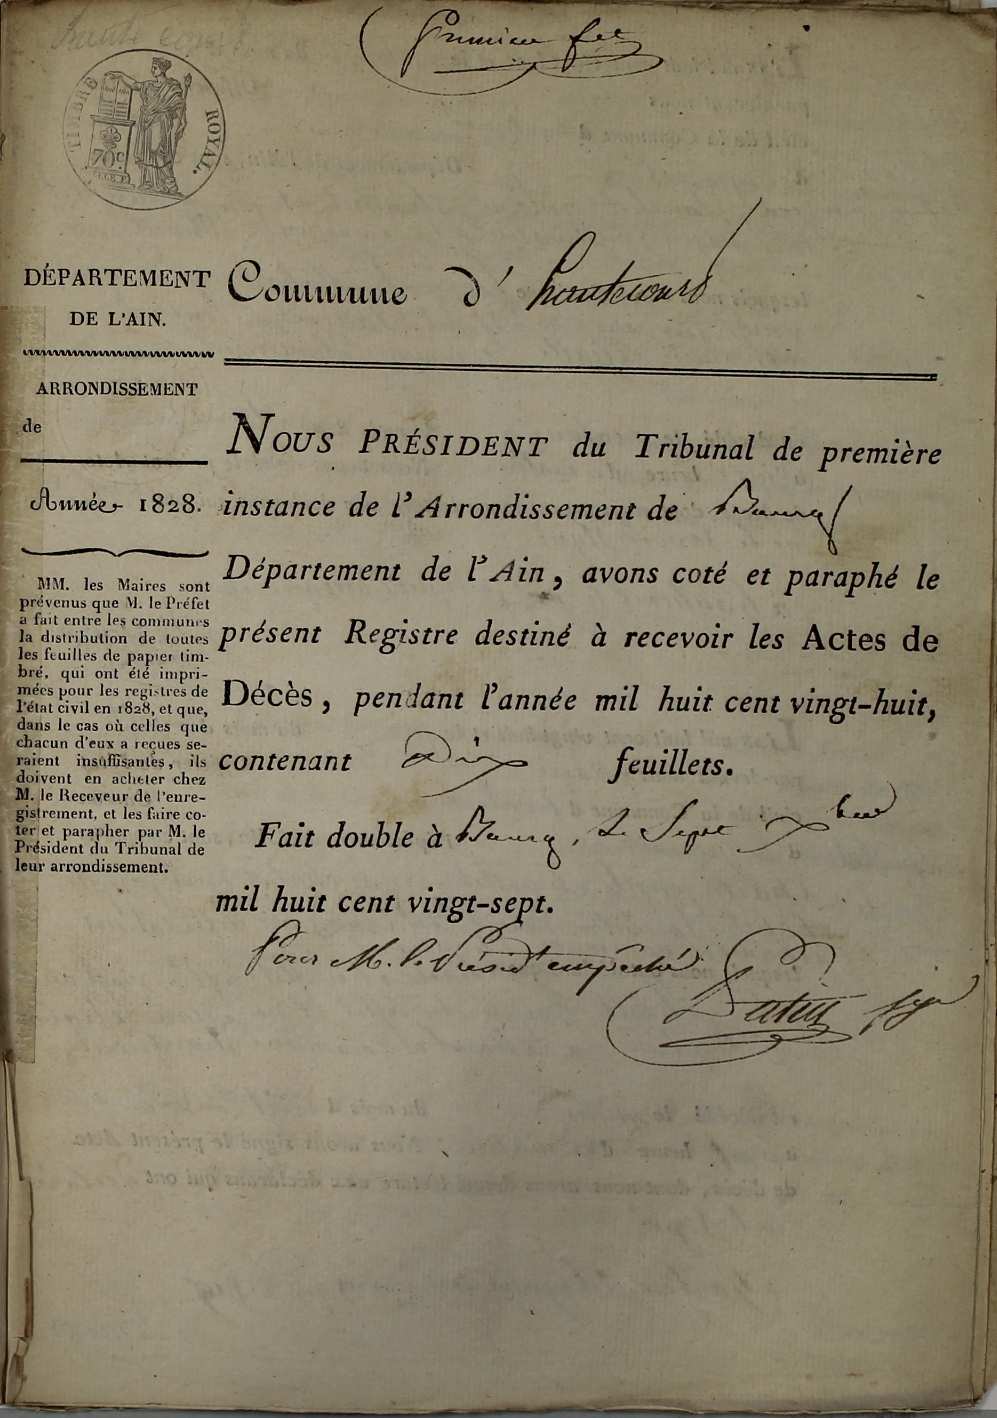 Premier fet
TIMBRE ROYAL.
70c
DÉPARTEMENT
DE L'AIN.
ARRONDISSEMENT
de
Année 1828.
MM. les Maires sont
prévenus que M. le Préfet
a fait entre les communes
la distribution de toutes
les feuilles de papier tim-
bré, qui ont été impri-
mées pour les registres de
l'état civil en 1828, et que,
dans le cas où celles que
chacun d'eux a reçues se-
raient insuffisantes, ils
doivent en acheter chez
M. le Receveur de l'enre-
gistrement, et les faire co-
ter et parapher par M. le
Président du Tribunal de
leur arrondissement.
Commune d' hautecourt
NOUS PRÉSIDENT du Tribunal de première
instance de l'Arrondissement de Bourg
Département de l'Ain, avons coté et paraphé le
présent Registre destiné à recevoir les Actes de
Décès, pendant l'année mil huit cent vingt-huit,
contenant Dix feuillets.
Fait double à Bourg, le Sept Xbre
mil huit cent vingt-sept.
Pour M. le Présidt empêché